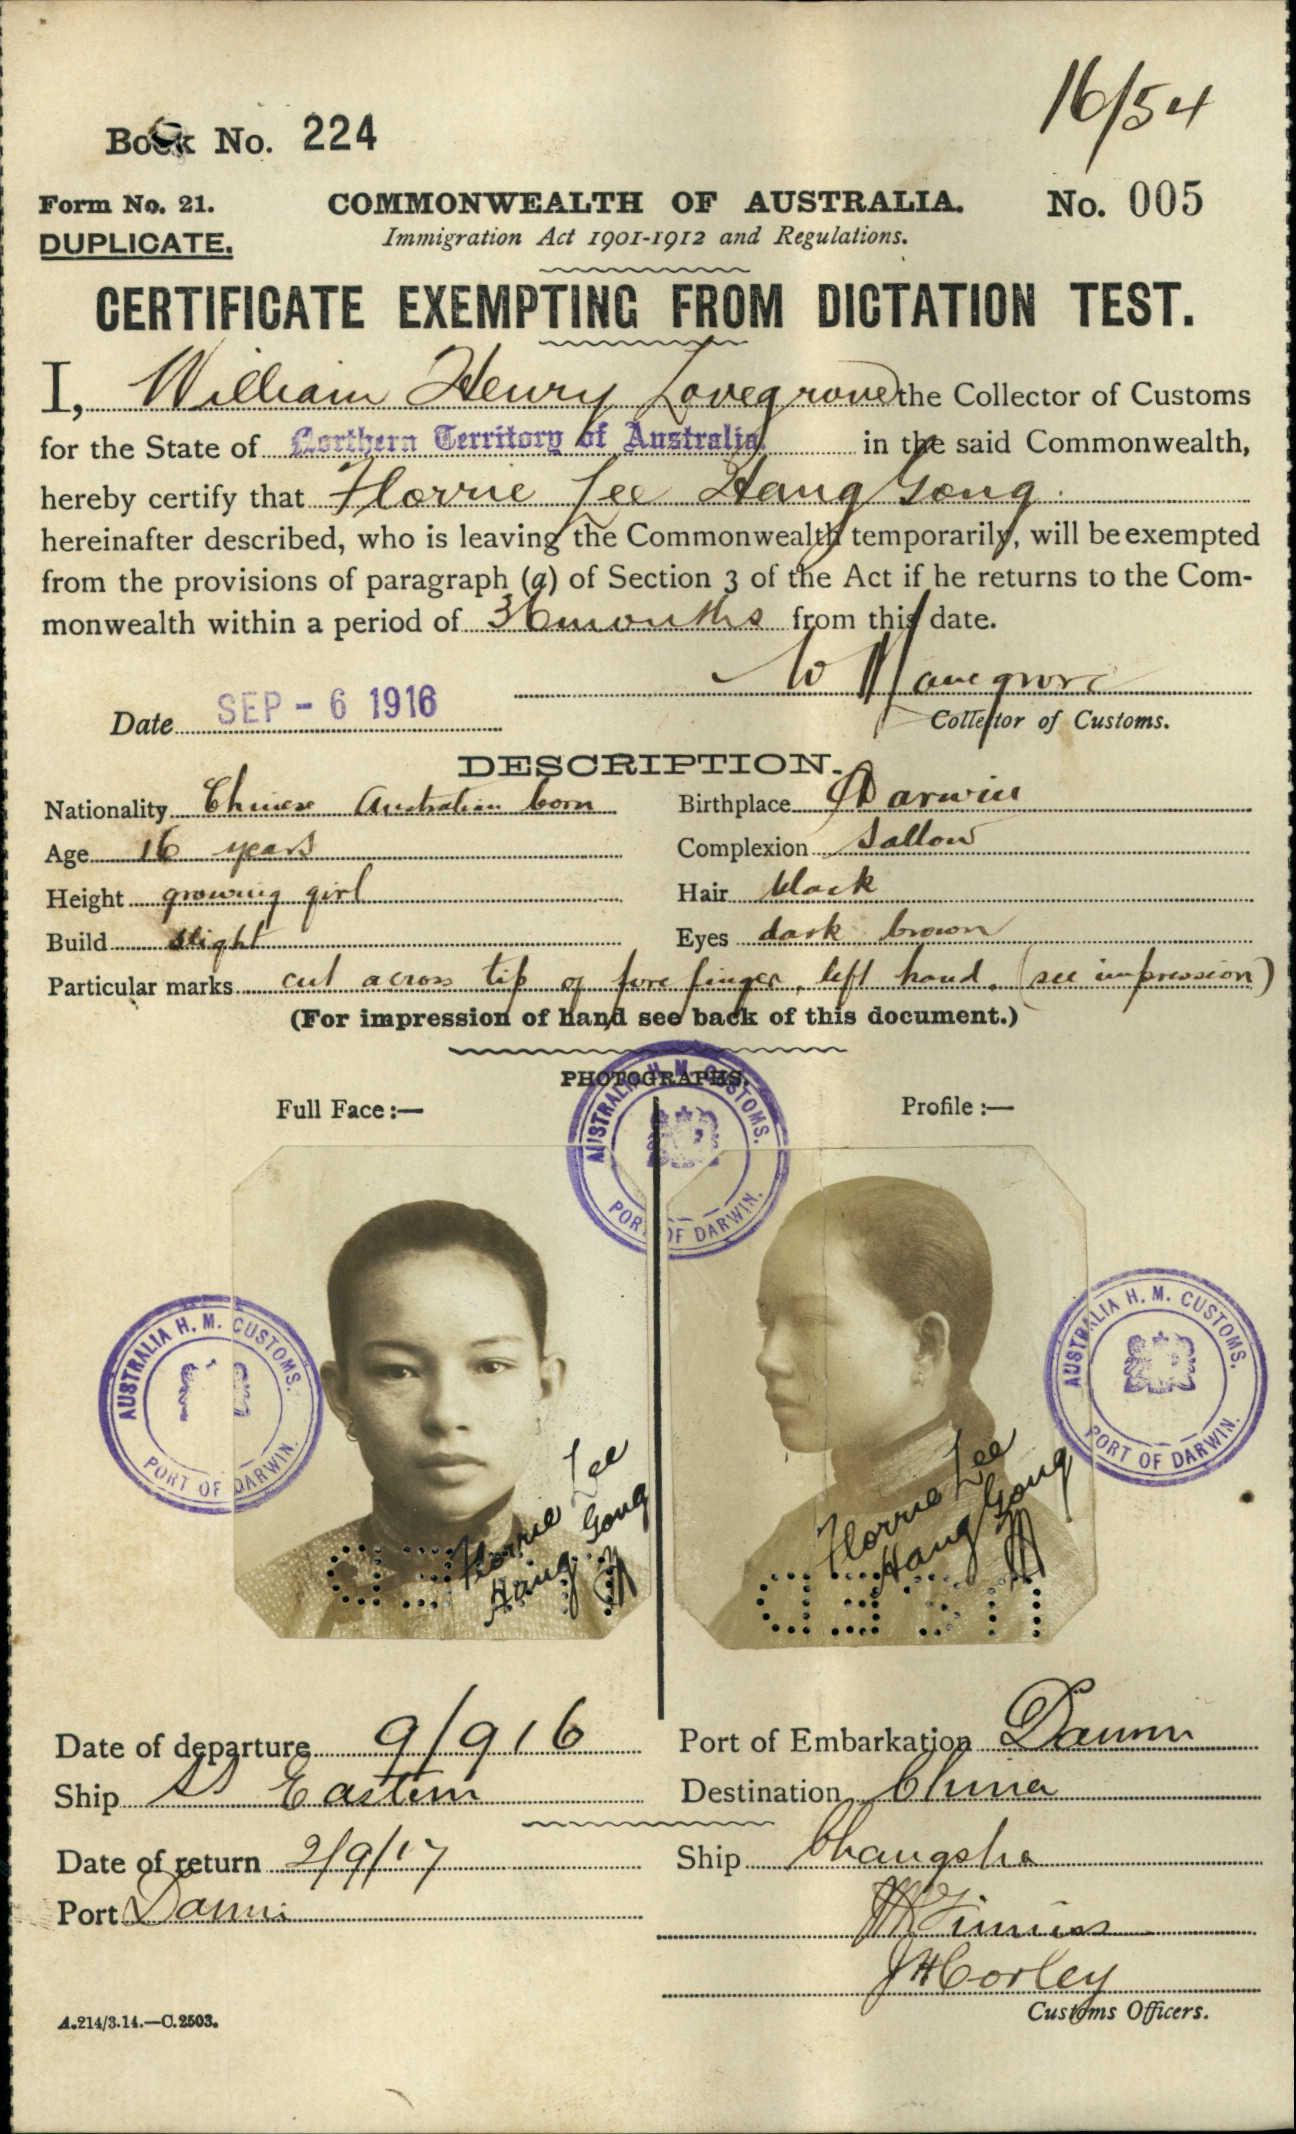 16/54
Book No. 224
Form No. 21.
COMMONWEALTH OF AUSTRALIA.
No. 005
DUPLICATE.
Immigration Act 1901-1912 and Regulations.
CERTIFICATE EXEMPTING FROM DICTATION TEST.
I, William Henry Lovegrove the Collector of Customs
for the State of Northern Territory of Australia in the said Commonwealth,
hereby certify that Florrie Lee Hang Gong
hereinafter described, who is leaving the Commonwealth temporarily, will be exempted
from the provisions of paragraph (a) of Section 3 of the Act if he returns to the Com-
monwealth within a period of 36 months from this date.
W Lovegrove
Date SEP - 6 1916
Collector of Customs.
DESCRIPTION.
Nationality Chinese Australian born
Birthplace Darwin
Age 16 years
Complexion Sallow
Height growing girl
Hair black
Build slight
Eyes dark brown
Particular marks cut across tip of fore finger, left hand. (see impression)
(For impression of hand see back of this document.)
PHOTOGRAPHS.
Full Face:—
Profile:—
AUSTRALIA H. M. CUSTOMS.
PORT OF DARWIN.
AUSTRALIA H. M. CUSTOMS.
PORT OF DARWIN.
AUSTRALIA H. M. CUSTOMS.
PORT OF DARWIN.
Florrie Lee
Hang Gong
Florrie Lee
Hang Gong
Date of departure 9/9 16
Port of Embarkation Darwin
Ship SS Eastern
Destination China
Date of return 2/9/17
Ship Changsha
Port Darwin
J H Corley
Customs Officers.
A.214/3.14.—C.2503.